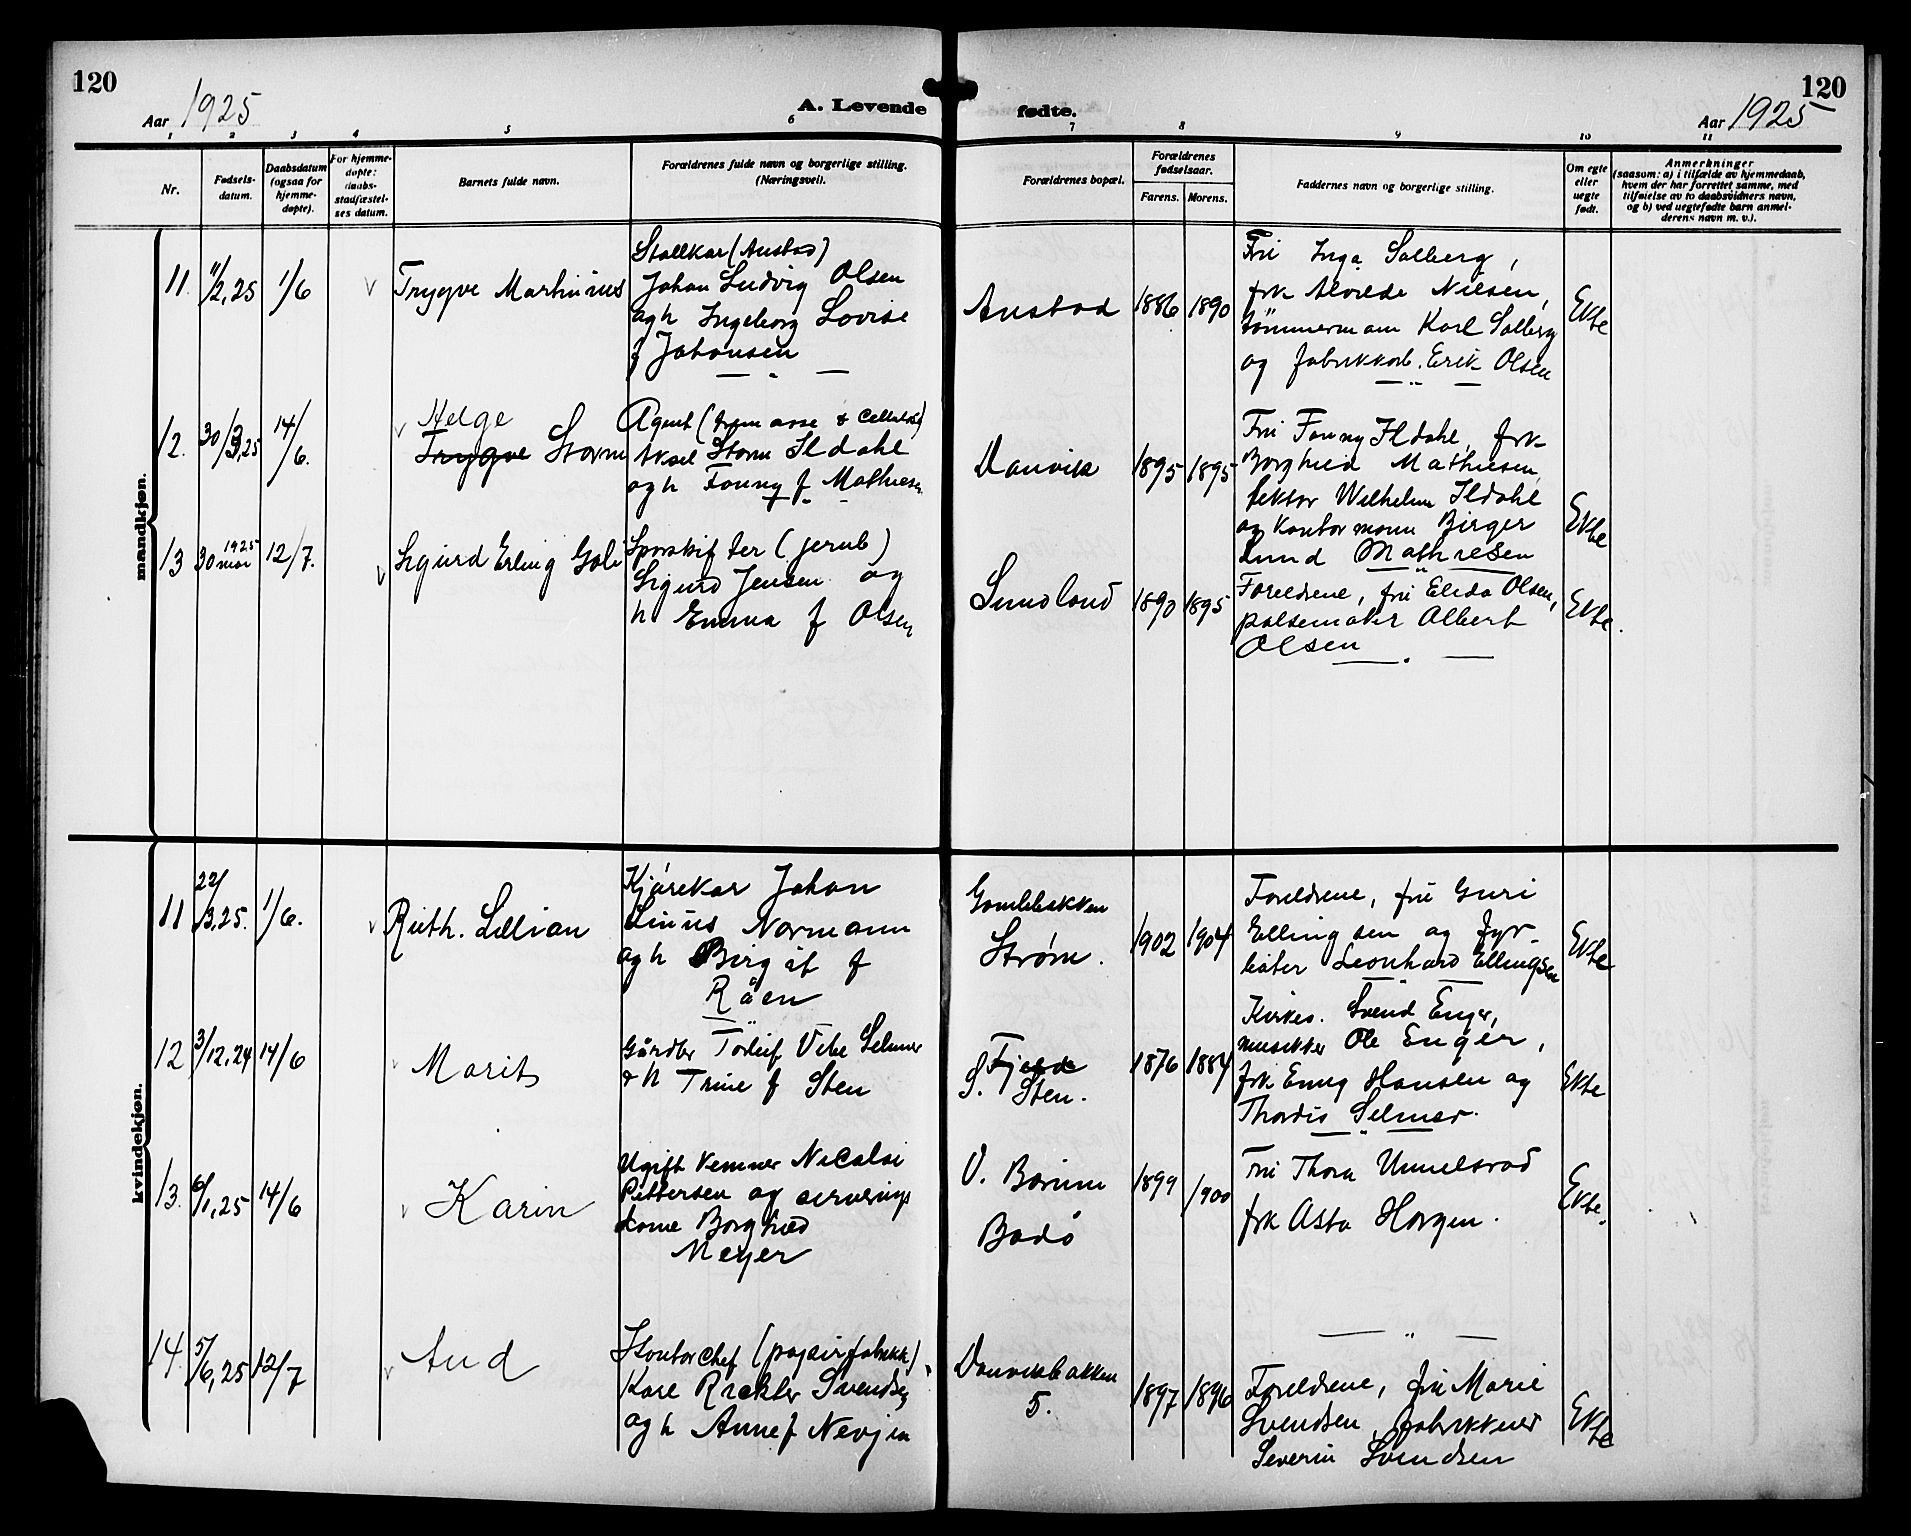 120
Aar 1925
A. Levende
fødte.
120
Aar 1925
1 2 3 4 5 6 7 8 9 10 11
Nr.
Fødsels-
datum.
Daabsdatum
(ogsaa for
hjemme-
døpte).
For hjemme-
døpte:
daabs-
stadfæstel-
ses datum.
Barnets fulde navn.
Forældrenes fulde navn og borgerlige stilling.
(Næringsvei).
Forældrenes bopæl.
Forældrenes
fødselsaar.
Farens. Morens.
Faddernes navn og borgerlige stilling.
Om egte
eller
uegte
født.
Anmerkninger
(saasom: a) i tilfælde av hjemmedaab,
hvem der har forrettet samme, med
tilføielse av to daabsvidners navn,
og b) ved uegtefødte barn anmel-
derens navn m. v.).
mandkjøn.
11. 11/2, 25 1/6
Trygve Martinius
Stallkar (Austad)
Johan Ludvig Olsen
og h Ingeborg Lovise
f Johansen
Austad
1886 1890
Fru Inga Solberg,
frk Alvilde Nilsen,
tømmermann Karl Solberg
og fabrikkarb. Erik Olsen
Ekte
12. 30/3, 25 14/6.
Helge
Trygve Storm
Agent (tremasse & Cellulose)
Aksel Storm Ildahl
og h Fanny f Mathiesen
Danvik
1895 1895
Fru Fanny Ildahl, frk
Borghild Mathiesen,
lektor Wilhelm Ildahl
og Kontormann Birger
Lund Mathiesen
Ekte
13 30 mar 1925 12/7.
Sigurd Erling
Sporskifter (jernb)
Sigurd Jensen og
h Emma f Olsen
Sundland
1890 1895
Foreldrene, fru Elida Olsen,
pølsemaker Albert
Olsen
Ekte.
kvindekjøn.
11 22/3, 25. 1/6.
Ruth. Lillian
Kjørekar Johan
Linius Normann
og h Birgit f
Råen
Gamlebakken
Strøm.
1902 1904
Foreldrene, fru Guri
Ellingsen og fyr-
bøter Leonhard Ellingsen
Ekte
12 3/12, 24 14/6
Marit
Gårdbr Torleif Vibe Selmer
& h Trine f Sten
Fjeld
S. Sten.
1876 1884
Kirkes. Svend Enger,
musikker Ole Enger,
frk Enny Hansen og
Thordis Selmer.
Ekte
13. 6/1, 25 14/6
Karin
Ugift Nicolai
Pettersen og serverings
dame Borghild
Meyer
V. Bærum
Bodø
1899 1900
Fru Thora
frk Asta Horgen.
Ekte.
14. 5/6, 25 12/7
Aud
Kontorchef (papirfabrikk)
Kåre Svendsen
og h Anne f
Danvikbakken
5.
1897 1896
Foreldrene, fru Marie
Svendsen, fabrikkeier
Severin Svendsen
Ekte